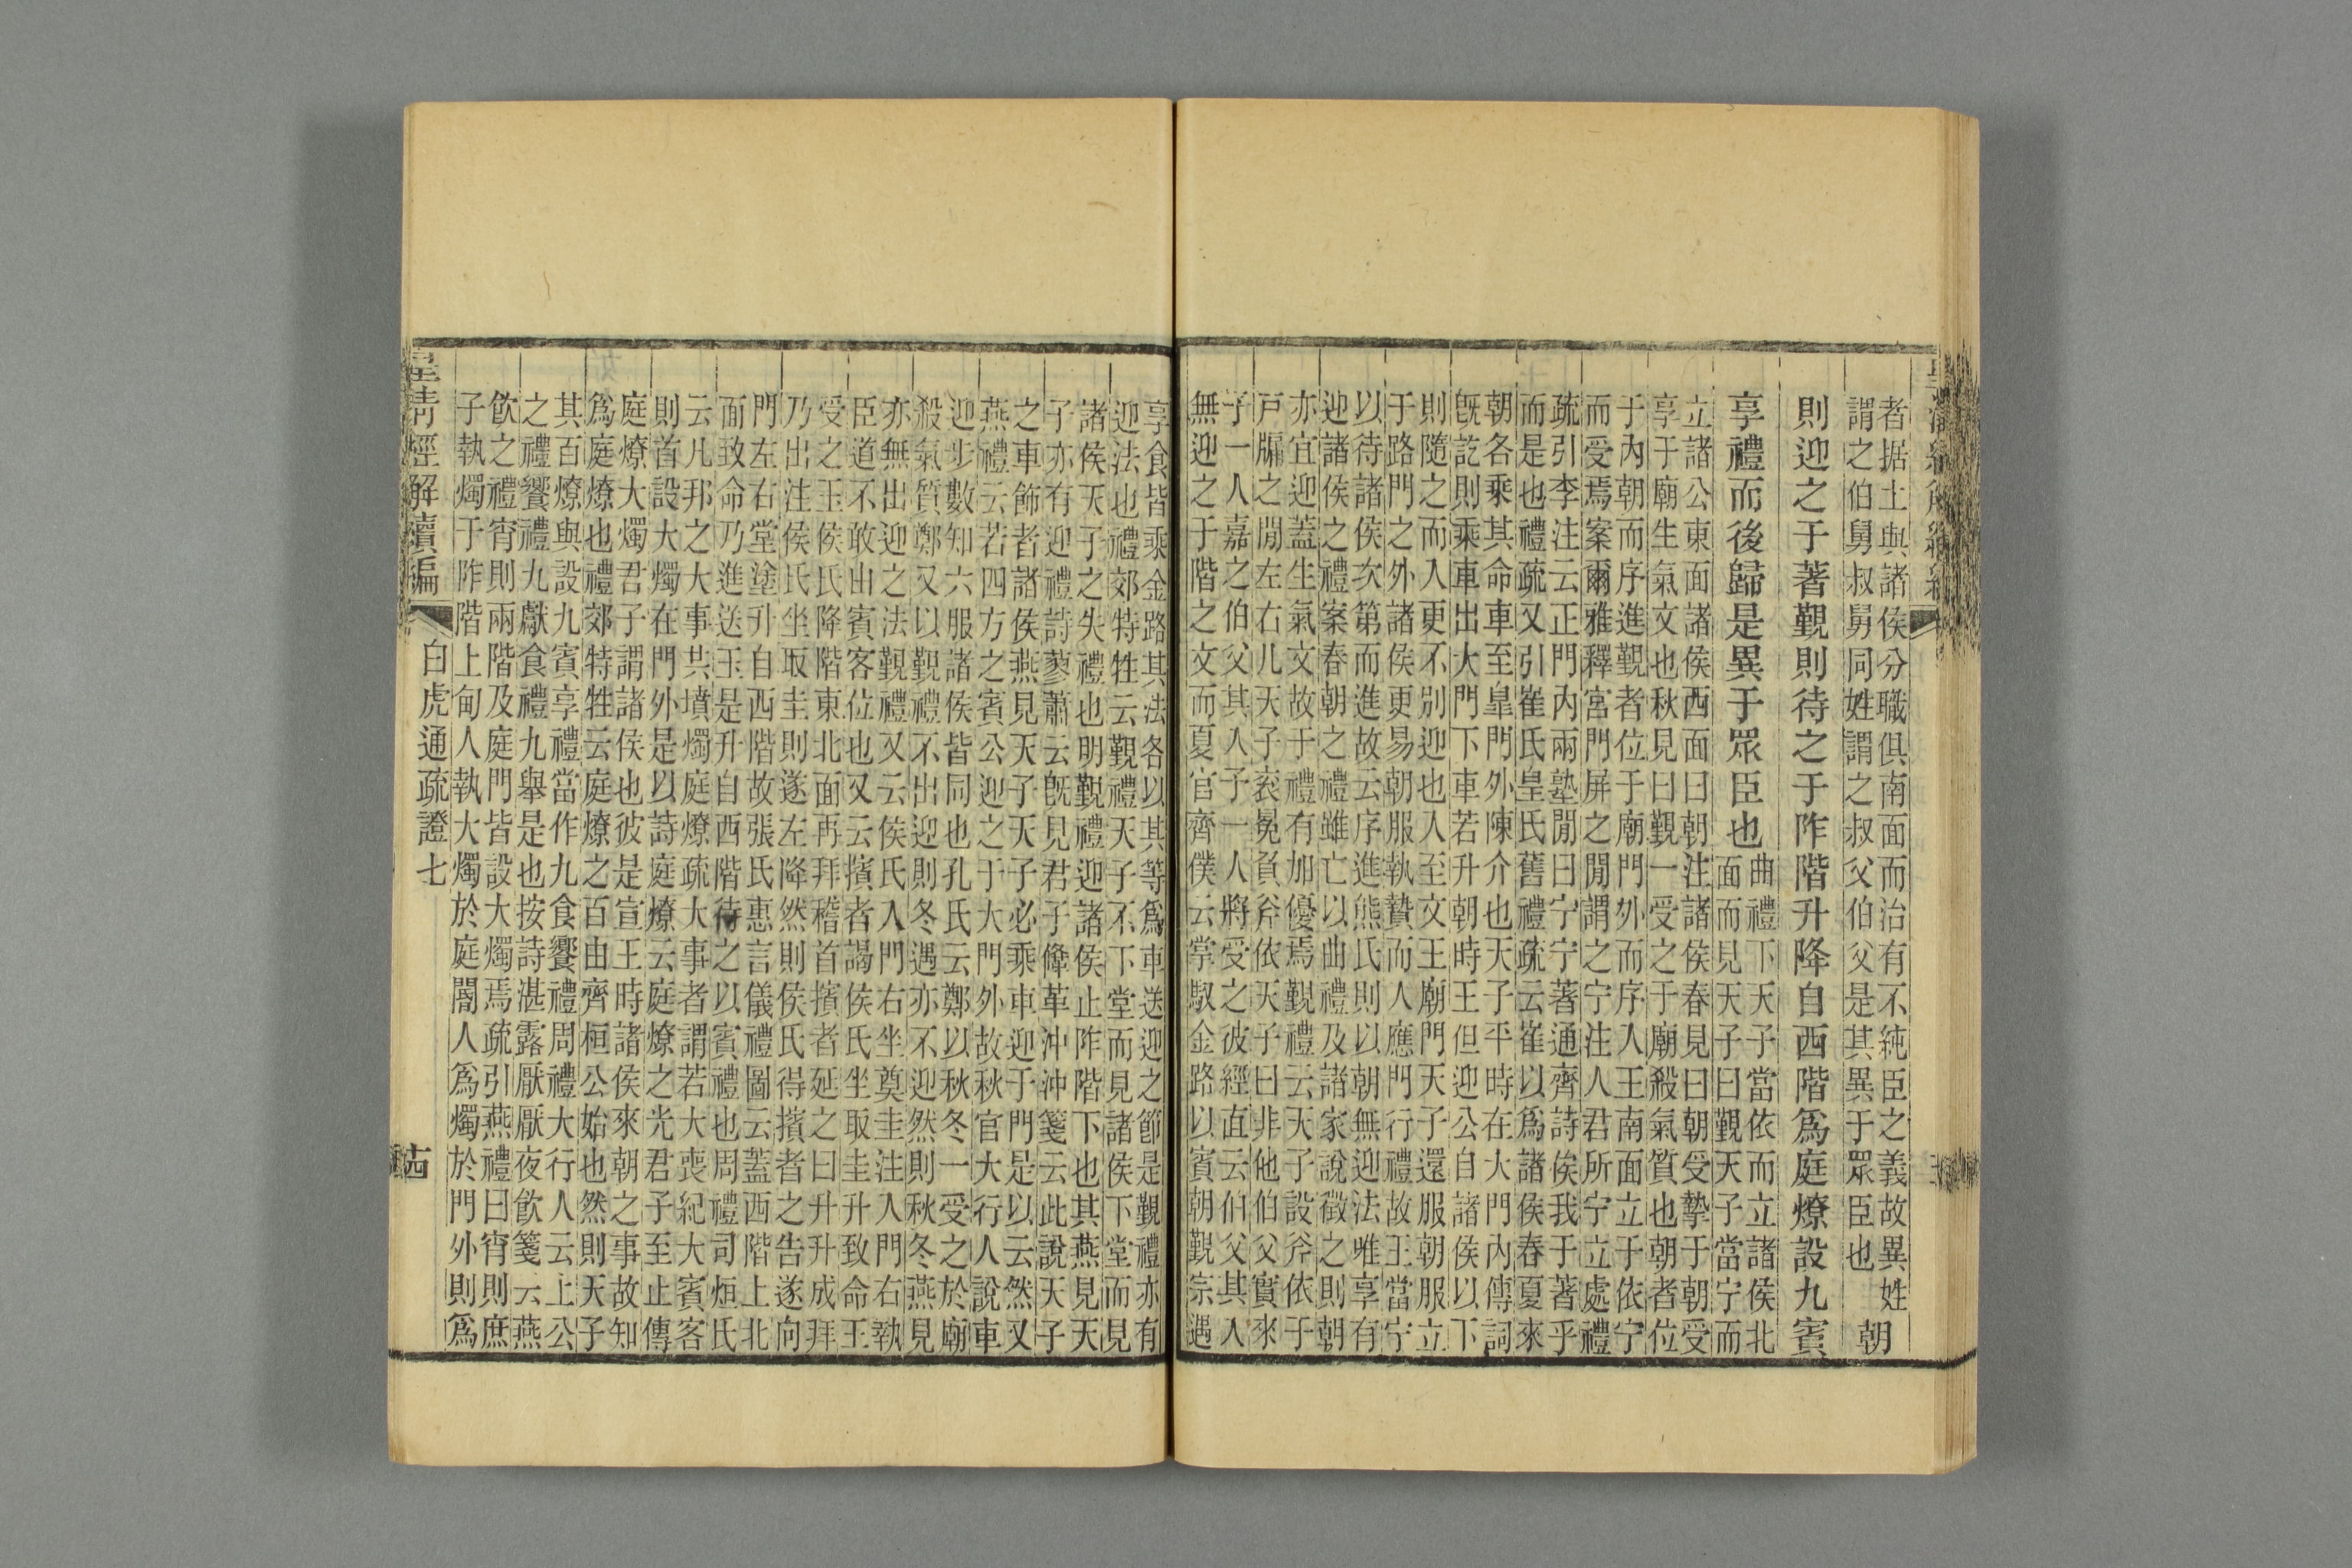 者据土與諸侯分職俱南面而治有不純臣之義故異姓
謂之伯舅叔舅同姓謂之叔父伯父是其異于眾臣也
朝
則迎之于著覲則待之于阼階升降自西階為庭燎設九賓
享禮而後歸是異于眾臣也
曲禮下天子當依而立諸侯北
面而見天子曰覲天子當宁而
立諸公東面諸侯西面曰朝注諸侯春見曰朝受摯于朝受
享于廟生氣文也秋見曰覲一受之于廟殺氣質也朝者位
于內朝而序進覲者位于廟門外而序入王南面立于依宁
而受焉案爾雅釋宮門屏之閒謂之宁注人君所宁立處禮
疏引李注云正門內兩塾閒曰宁宁著通齊詩俟我于著乎
而是也禮疏又引崔氏皇氏舊禮疏云崔以為諸侯春夏來
朝各乘其命車至皐門外陳介也天子平時在大門內傳詞
旣訖則乘車出大門下車若升朝時王但迎公自諸侯以下
則隨之而入更不別迎也入至文王廟門天子還服朝服立
于路門之外諸侯更易朝服執贄而人應門行禮故王當宁
以待諸侯次第而進故云序進熊氏則以朝無迎法唯享有
迎諸侯之禮案春朝之禮雖亡以曲禮及諸家說徵之則朝
亦宜迎蓋生氣文故于禮有加優焉覲禮云天子設斧依于
戸牖之閒左右几天子袞冕負斧依天子曰非他伯父實來
予一人嘉之伯父其入予一人將受之彼經直云伯父其入
無迎之于階之文而夏官齊僕云掌馭金路以賓朝覲宗遇
享食皆乘金路其法各以其等為車送迎之節是覲禮亦有
迎法也禮郊特牲云覲禮天子不下堂而見諸侯下堂而見
諸侯天子之失禮也明覲禮迎諸侯止阼階下也其燕見天
子亦有迎禮詩蓼蕭云旣見君子鞗革沖沖箋云此說天子
之車飾者諸侯燕見天子天子必乘車迎于門是以云然又
燕禮云若四方之賓公迎之于大門外故秋官大行人說車
迎步數知六服諸侯皆同也孔氏云鄭以秋冬一受之於廟
殺氣質鄭又以覲禮不出迎則冬遇亦不迎然則秋冬燕見
亦無出迎之法覲禮又云侯氏入門右坐奠圭注入門右執
臣道不敢由賓客位也又云擯者謁侯氏坐取圭升致命王
受之玉侯氏降階東北面再拜稽首擯者延之曰升升成拜
乃出注侯氏坐取圭則遂左降然則侯氏得擯者之告遂向
門左右堂塗升自西階故張氏惠言儀禮圖云蓋西階上北
面致命乃進送玉是升自西階待之以賓禮也周禮司烜氏
云凡邦之大事共墳燭庭燎疏大事者謂若大喪紀大賓客
則首設大燭在門外是以詩庭燎云庭燎之光君子至止傳
庭燎大燭君子謂諸侯也彼是宣王時諸侯來朝之事故知
為庭燎也禮郊特牲云庭燎之百由齊桓公始也然則天子
其百燎與設九賓享禮當作九食饗禮周禮大行人云上公
之禮饗禮九獻食禮九舉是也按詩湛露厭厭夜飲箋云燕
飲之禮宵則兩階及庭門皆設大燭焉疏引燕禮曰宵則庶
子執燭于阼階上甸人執大燭於庭閽人為燭於門外則為
皇清經解續編 白虎通疏證七